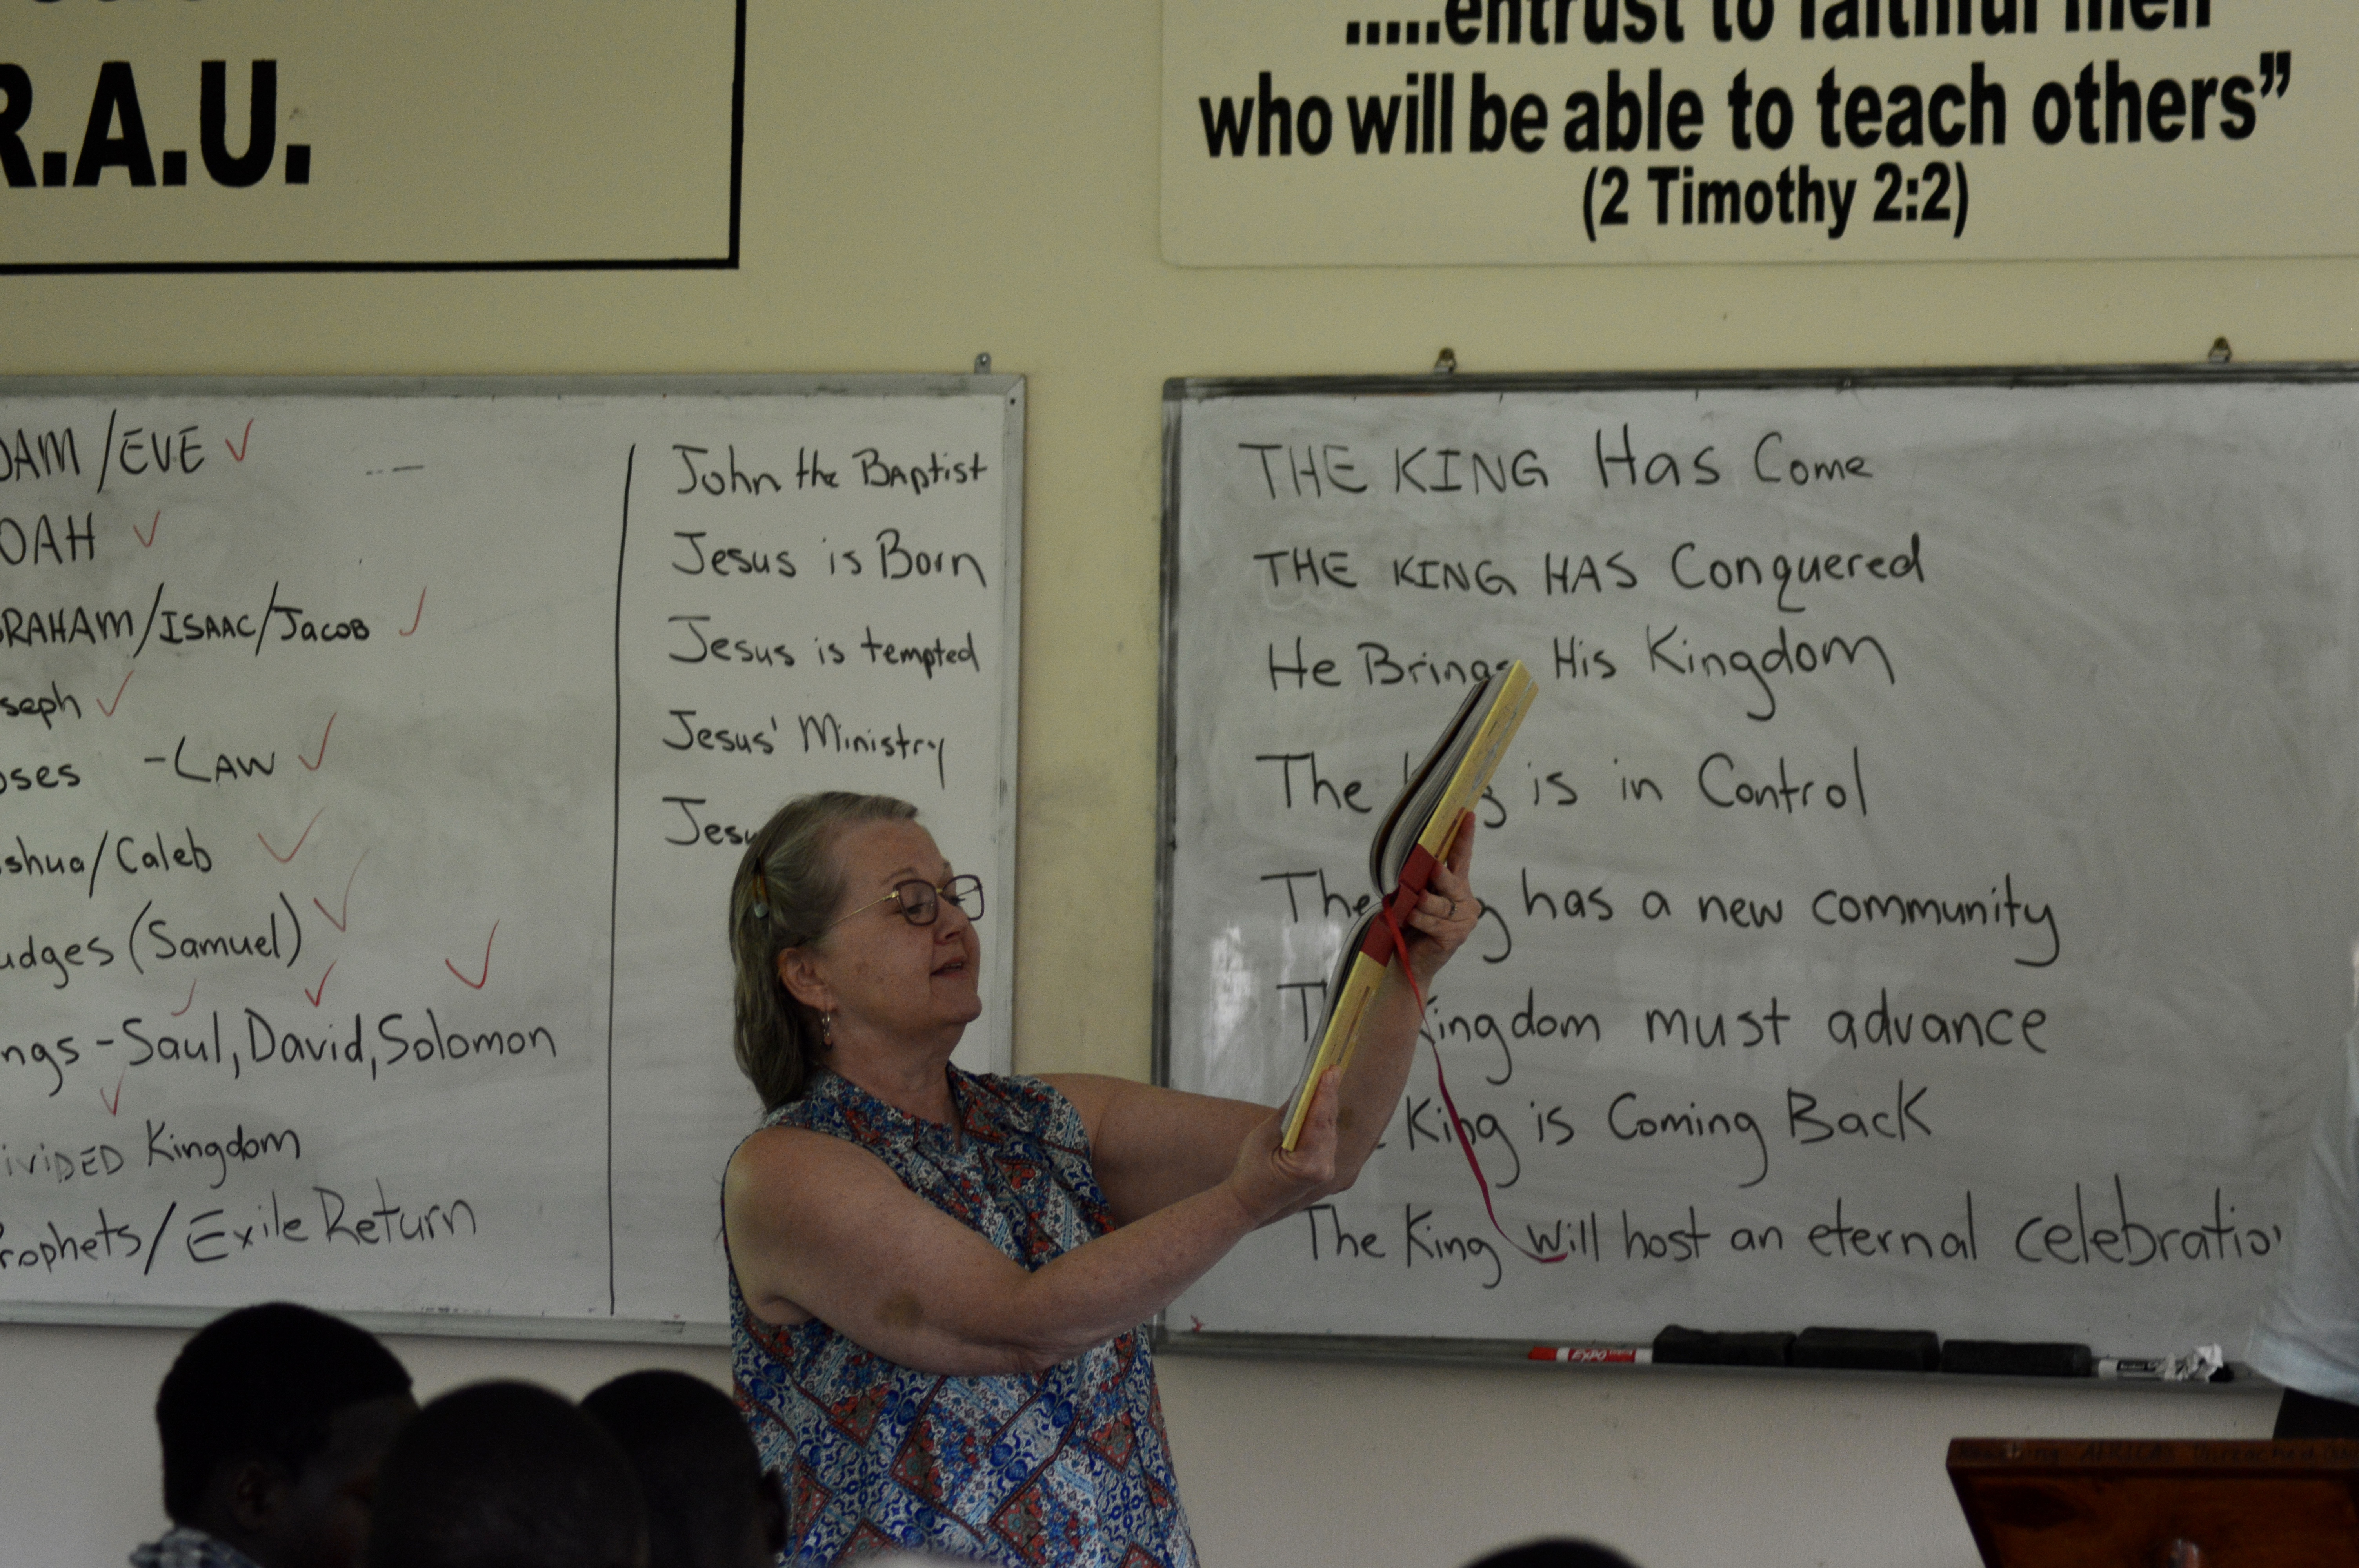 R.A.U.
.....entrust to faithful men
who will be able to teach others”
(2 Timothy 2:2)
DAM/EVE
OAH
RAHAM/ISAAC/Jacob
seph
oses -LAW
shua/Caleb
udges (Samuel)
ngs - Saul, David, Solomon
iViDED Kingdom
rophets/Exile Return
John the Baptist
Jesus is Born
Jesus is tempted
Jesus' Ministry
Jesu
THE KING Has Come
THE KING HAS Conquered
He Brings His Kingdom
The is in Control
The has a new community
ingdom must advance
King is Coming Back
The King Will host an eternal celebratio
EXPO
AFRICA'S Unreached